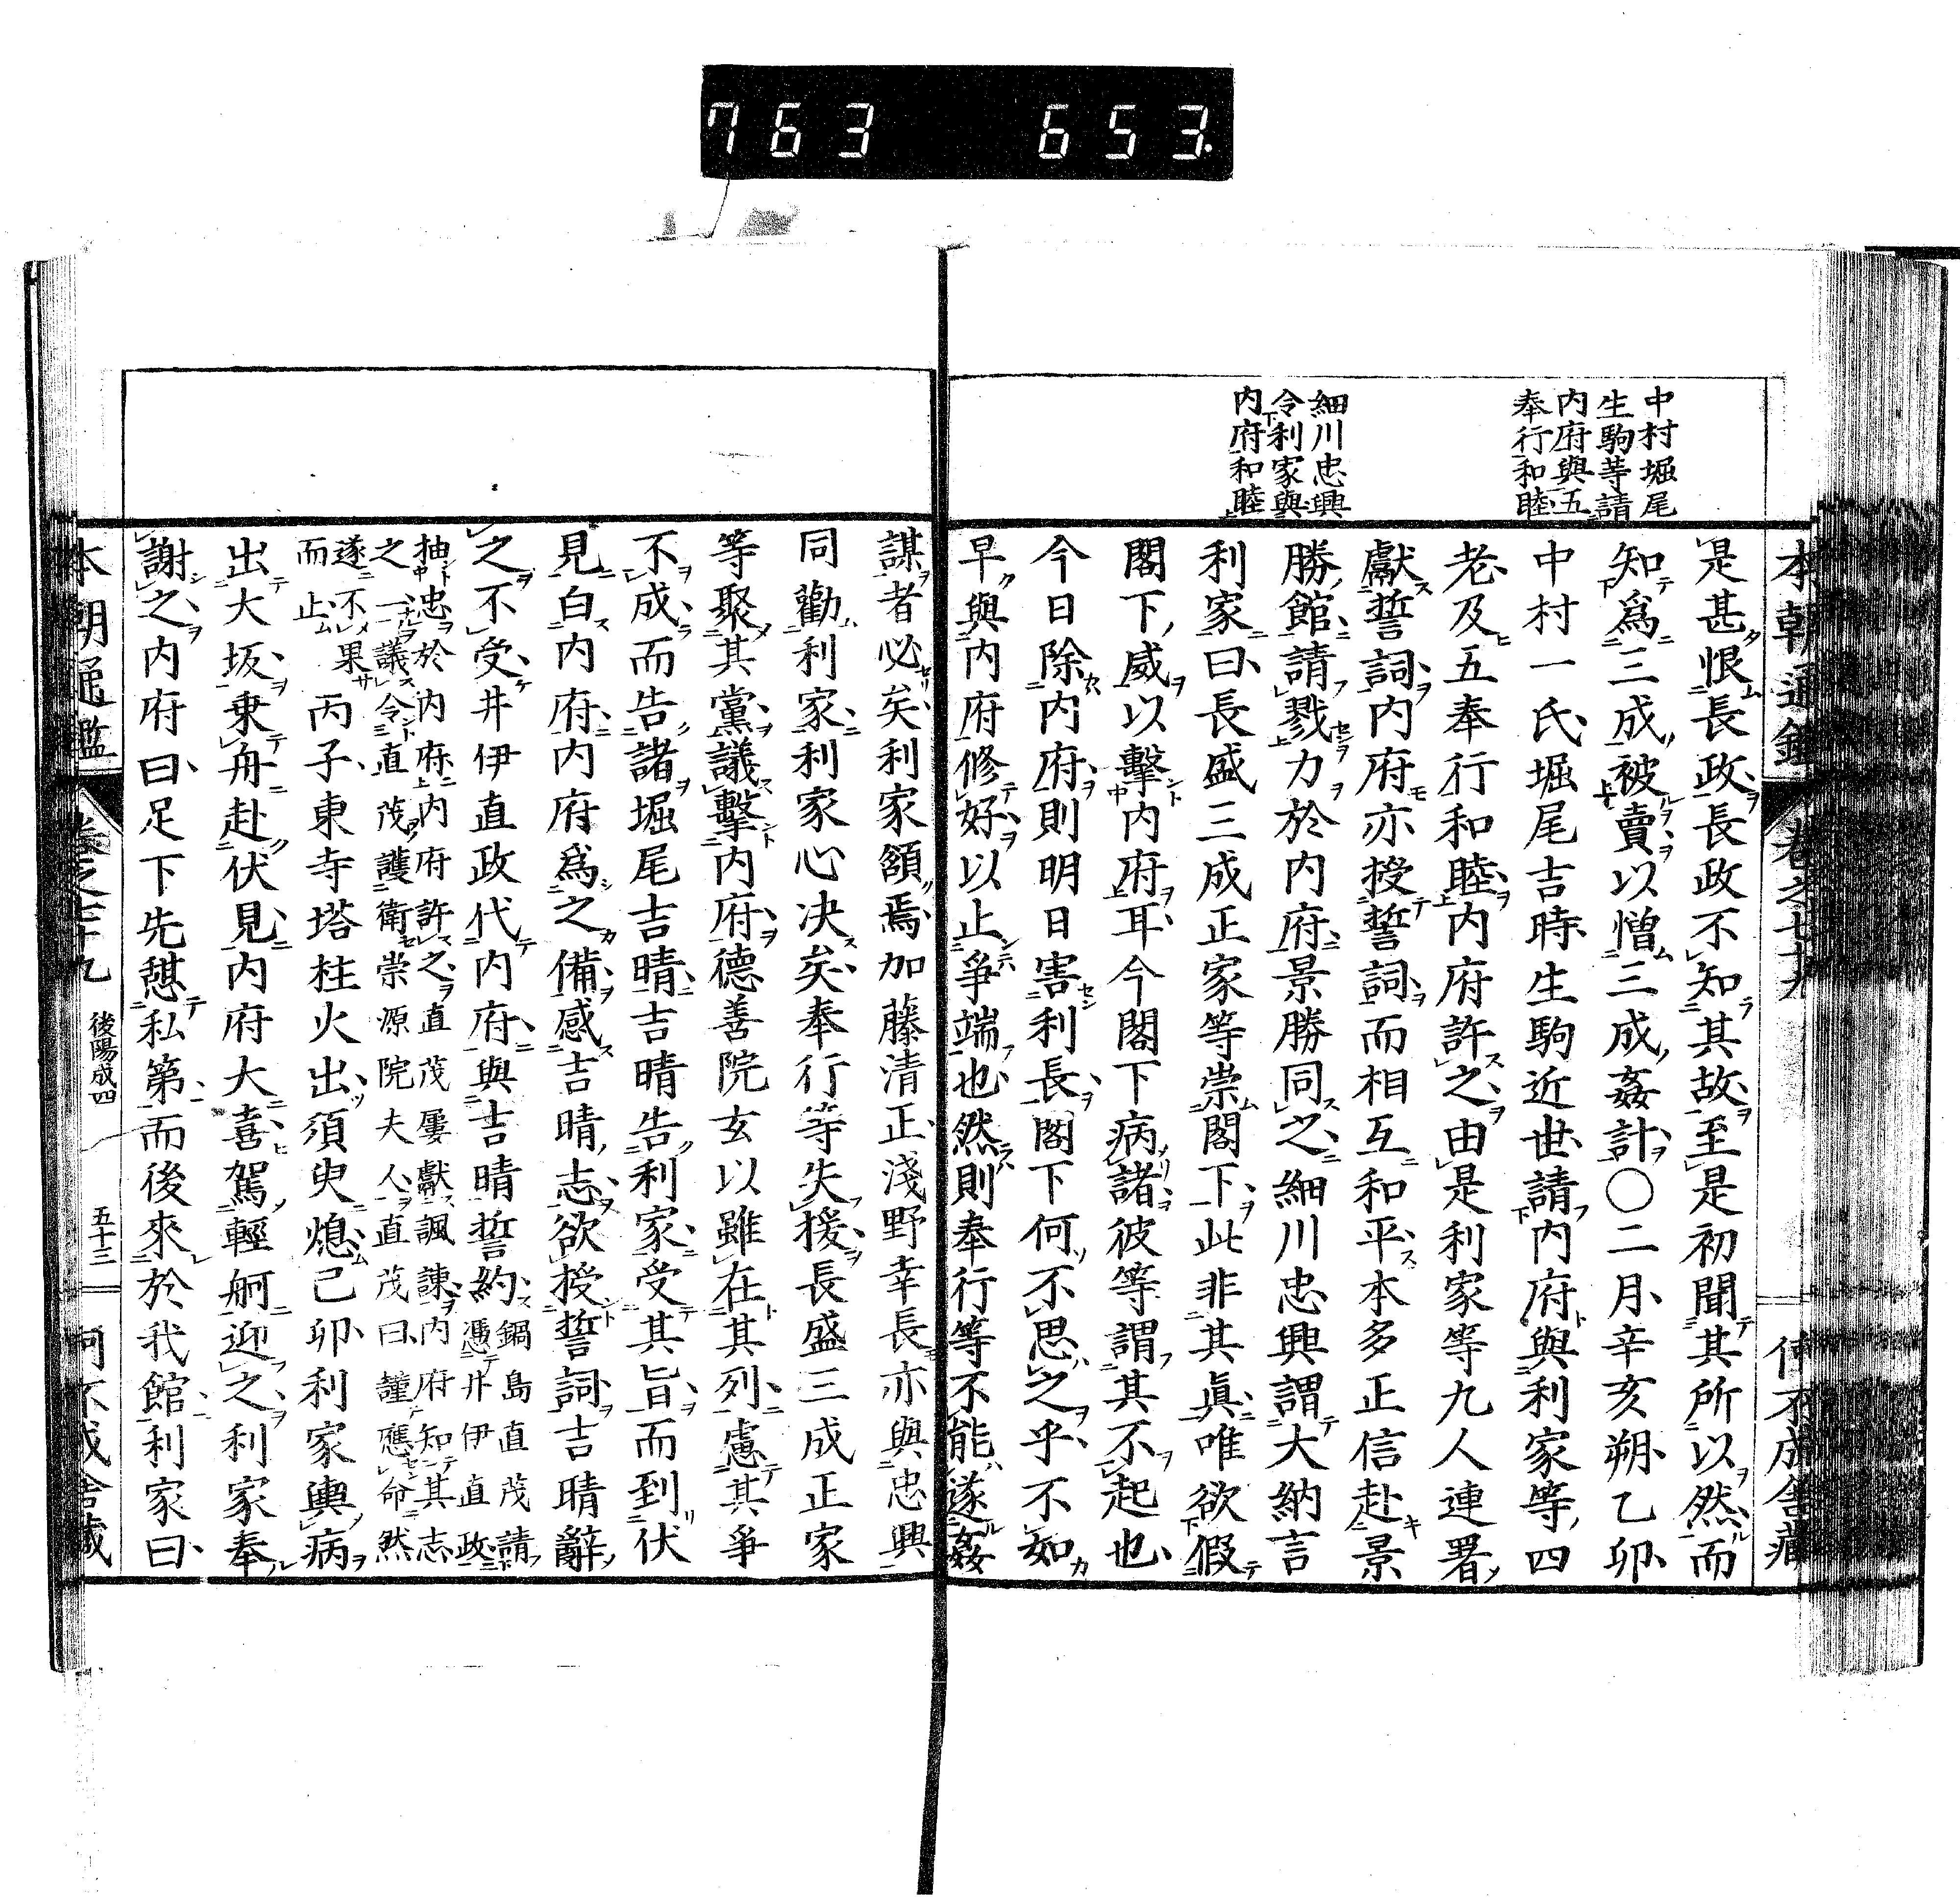 763 653.
本朝通鑑 卷之七十九 何不成舎藏
中村堀尾
生駒等請
内府與五
奉行和睦
細川忠興
令利家與
内府和睦
是甚恨長政長政不知其故至是初聞其所以然而
知爲三成被賣以憎三成姦計〇二月辛亥朔乙卯
中村一氏堀尾吉時生駒近世請内府與利家等四
老及五奉行和睦内府許之由是利家等九人連署
獻誓詞内府亦授誓詞而相互和平本多正信赴景
勝館請戮力於内府景勝同之細川忠興謂大納言
利家曰長盛三成正家等崇閣下此非其眞唯欲假
閣下威以擊内府耳今閣下病諸彼等謂其不起也
今日除内府則明日害利長閣下何不思之乎不如
早與内府修好以止爭端也然則奉行等不能遂姦
謀者必矣利家頷焉加藤清正淺野幸長亦與忠興
同勸利家利家心决矣奉行等失援長盛三成正家
等聚其黨議擊内府德善院玄以雖在其列慮其爭
不成而告諸堀尾吉晴吉晴告利家受其旨而到伏
見白内府内府爲之備感吉晴志欲授誓詞吉晴辭
之不受井伊直政代内府與吉晴誓約鍋島直茂請
憑井伊直政
抽忠於内府内府許之直茂屢獻諷諫内府知其志
之一議令直茂護衛崇源院夫人直茂曰謹應命然
遂不果
而止
丙子東寺塔柱火出須臾熄己卯利家輿病
出大坂乗舟赴伏見内府大喜駕輕舸迎之利家奉
謝之内府曰足下先憇私第而後來於我館利家曰
本朝通鑑 卷之七十九 後陽成四 五十三 何不成舎藏